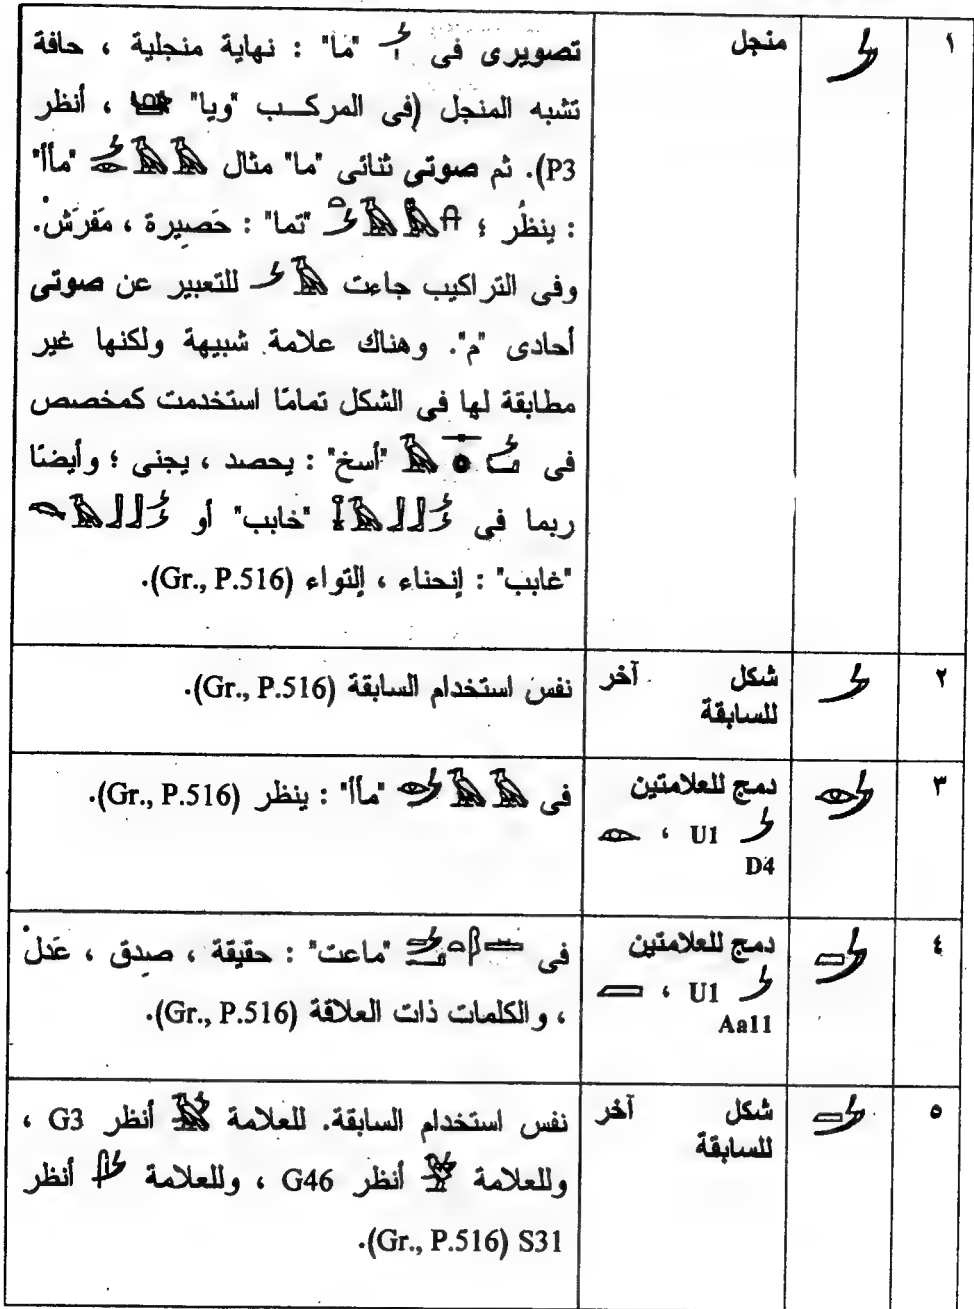 ١
منجل
تصويرى فى "ما" : نهاية منجلية ، حافة
تشبه المنجل (فى المركب "ويا" ، أنظر
P3). ثم صوتى ثنائى "ما" مثال "مأأ"
: ينظُر ؛ "تما" : حَصيرة ، مَفرَشْ.
وفى التراكيب جاءت للتعبير عن صوتى
أحادى "م". وهناك علامة شبيهة ولكنها غير
مطابقة لها فى الشكل تمامًا استخدمت كمخصص
فى "أسخ" : يحصد ، يجنى ؛ وأيضًا
ربما فى "خابب" أو
"غابب" : إنحناء ، إلتواء (Gr., P.516).
٢
شكل آخر
للسابقة
نفس استخدام السابقة (Gr., P.516).
٣
دمج للعلامتين
U1 ،
D4
فى "مأأ" : ينظر (Gr., P.516).
٤
دمج للعلامتين
U1 ،
Aa11
فى "ماعت" : حقيقة ، صدق ، عَدلْ
، والكلمات ذات العلاقة (Gr., P.516).
٥
شكل آخر
للسابقة
نفس استخدام السابقة. للعلامة أنظر G3 ،
وللعلامة أنظر G46 ، وللعلامة أنظر
S31 (Gr., P.516).